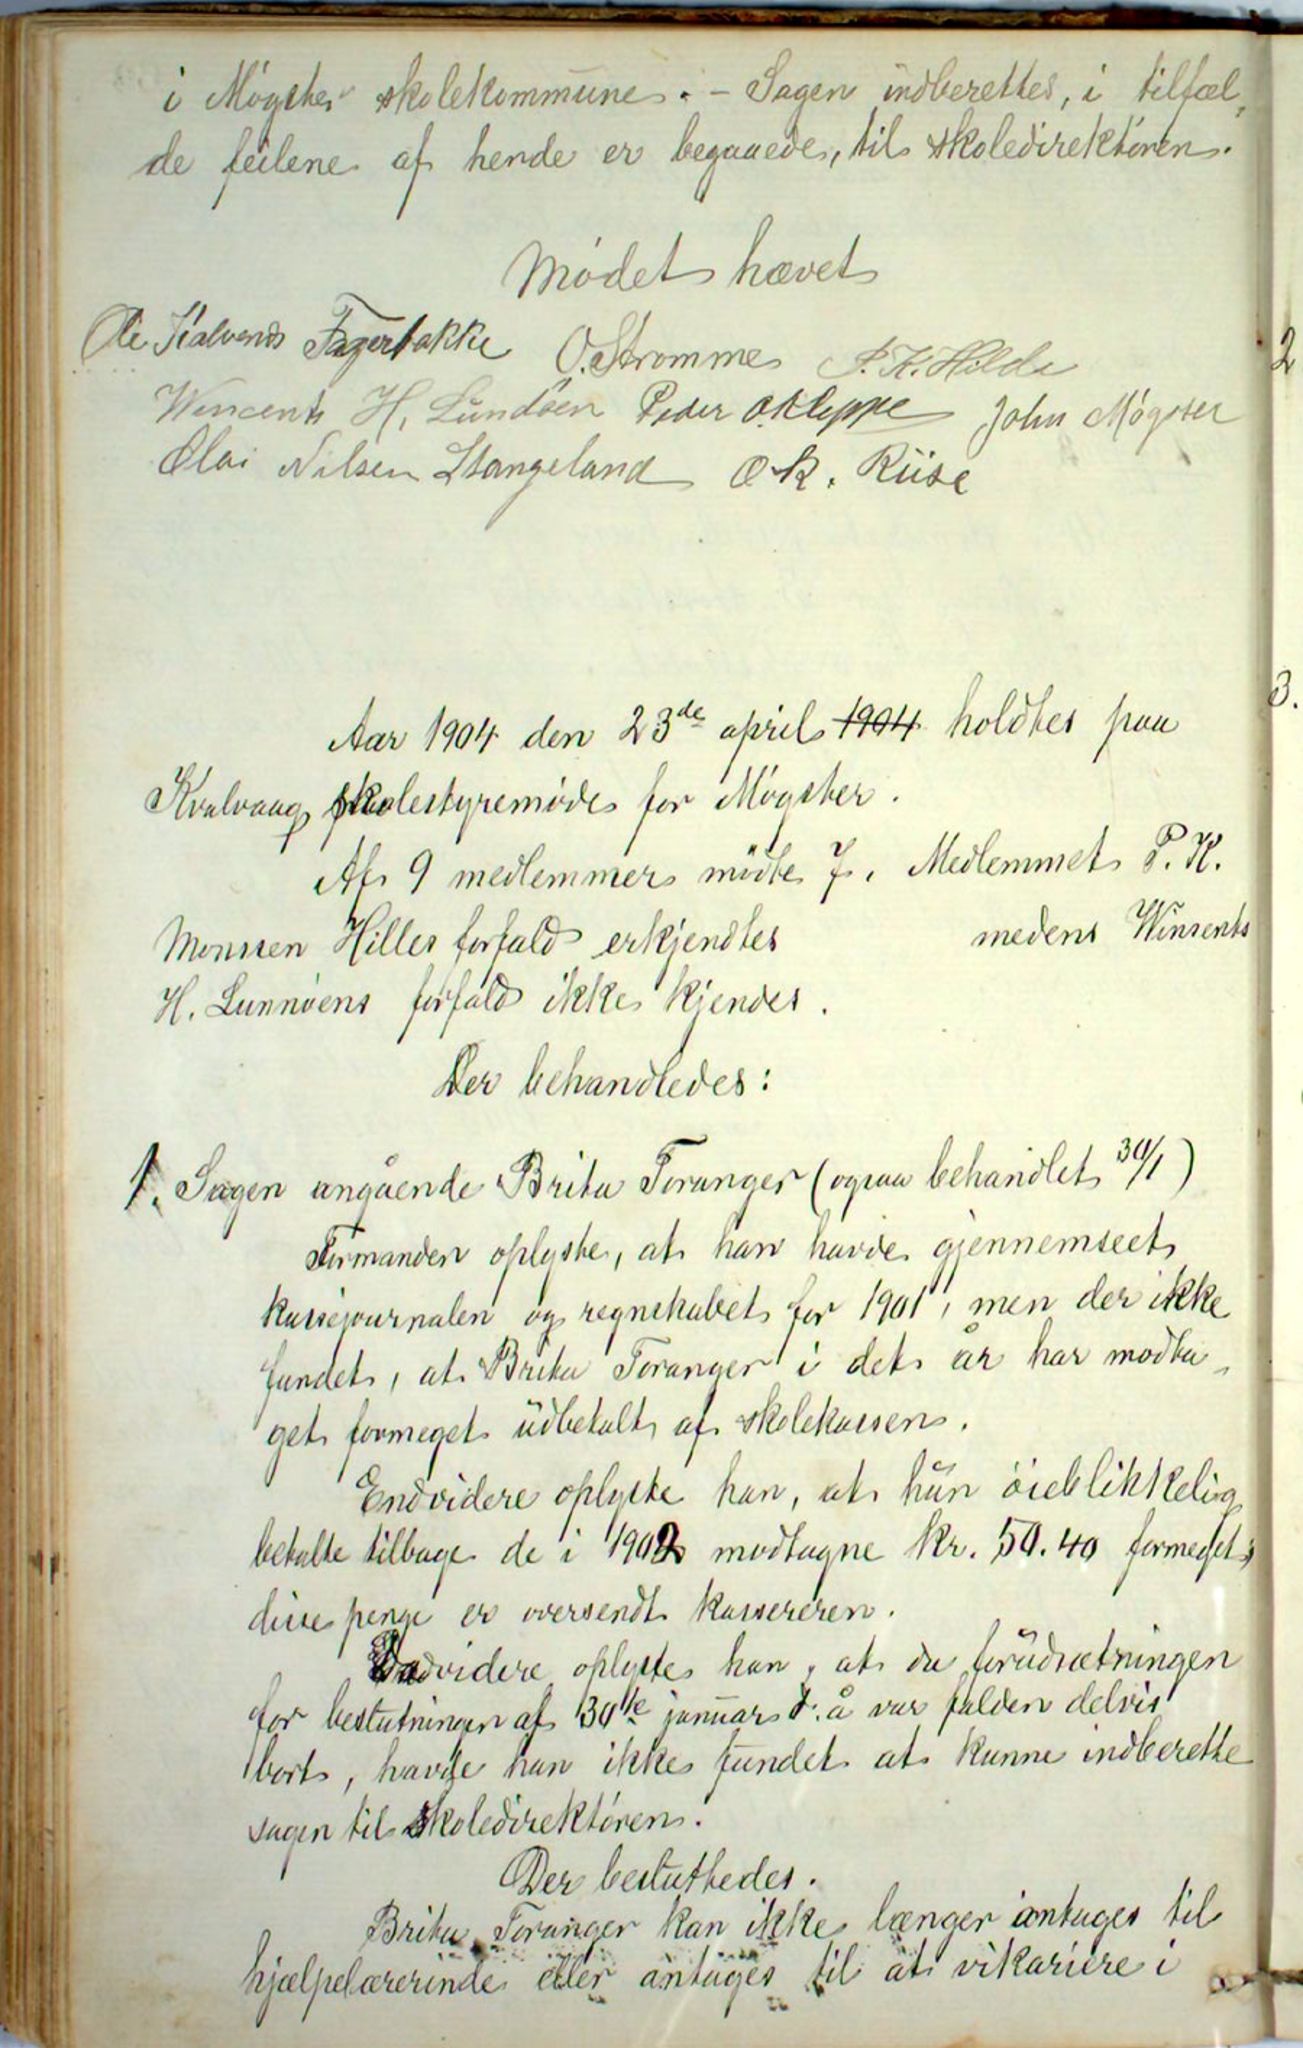 i Møgster skolekommune. - Sagen indberettes, i tilfæl,
de feilene af hende er begaaede, til skoledirektøren.
Mødet hævet
Ole Kalvenes Fagerbakke O. Strømme P. K. Hilde
Wincents H. Lundøen Peder O. Kleppe John Møgster
Olai Nilsen Stangeland O. K. Riise
Aar 1904 den 23de april 1904 holdtes paa
Kvalvaag skolestyremøde for Møgster.
Af 9 medlemmer mødte 7. Medlemmet P. K.
Monssen Hilles forfald erkjendtes medens Winsents
H. Lunnøens forfald ikke kjendes.
Der behandledes:
1. Sagen angående Brita Toranger (ogsaa behandlet 30/1)
Formanden oplyste, at han havde gjennemseet
kassejournalen og regnskabet for 1901, men der ikke
fundet, at Brita Toranger i det år har modta-
get formeget udbetalt af skolekassen.
Endvidere oplyste han, at hun øieblikkelig
betalte tilbage de i 1902 modtagne kr. 50.40 formeget;
disse penge er oversendt kassereren.
Endvidere oplyste han, at da forudsætningen
for beslutningen af 30te januar d. å var falden delvis
bort, havde han ikke fundet at kunne indberette
sagen til skoledirektøren.
Der besluttedes.
Brita Toranger kan ikke længer antages til
hjælpelærerinde eller antages til at vikariere i
2
3.